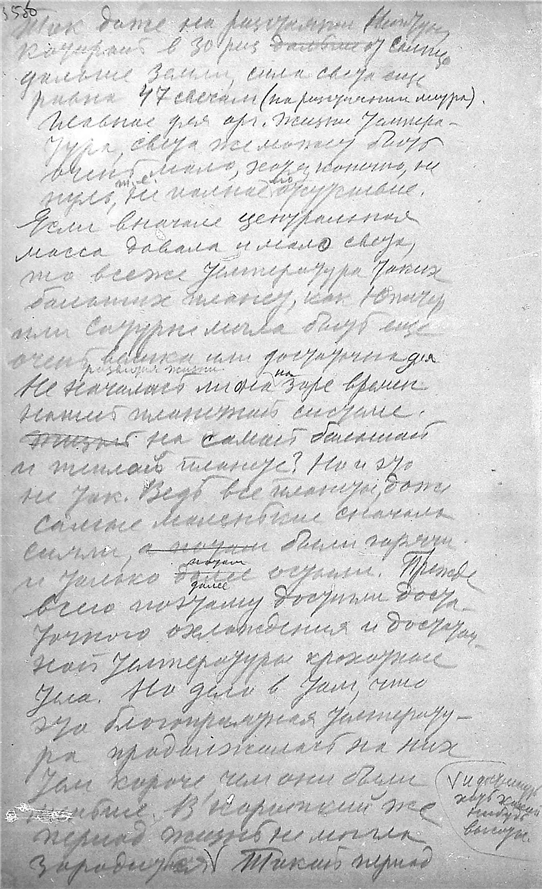 Так даже на расстоянии Нептуна,
который в 30 раз дальше от солнца,
дальше Земли, сила света еще
равна 47 свечам (на расстоянии метра).
Главное для орг. жизни темпера-
тура, света же может быть
очень мало, хотя, конечно, не
нуль, т. е. не полное его отсутствие.
Если вначале центральная
масса давала и мало света,
то все же температура таких
больших планет, как Юпитер
или Сатурн могла быть еще
очень велика или достаточна для
развития жизни
Не началась ли она на заре времен
нашей планетной системы
жизнь на самой большой
и теплой планете? Но и это
не так. Ведь все планеты, даже
самые маленькие сначала
сияли, а потом были горячи
и только более потом далее остыли. Прежде
всего поэтому достигли доста-
точного охлаждения и достаточ-
ной температуры крохотные
тела. Но дело в том, что
эта благоприятная температу-
ра продолжалась на них
тем короче чем они были
меньше. В короткий же
период жизнь не могла
зародиться √ Такой период
√ и достигнуть
хоть какой
нибудь
высоты.